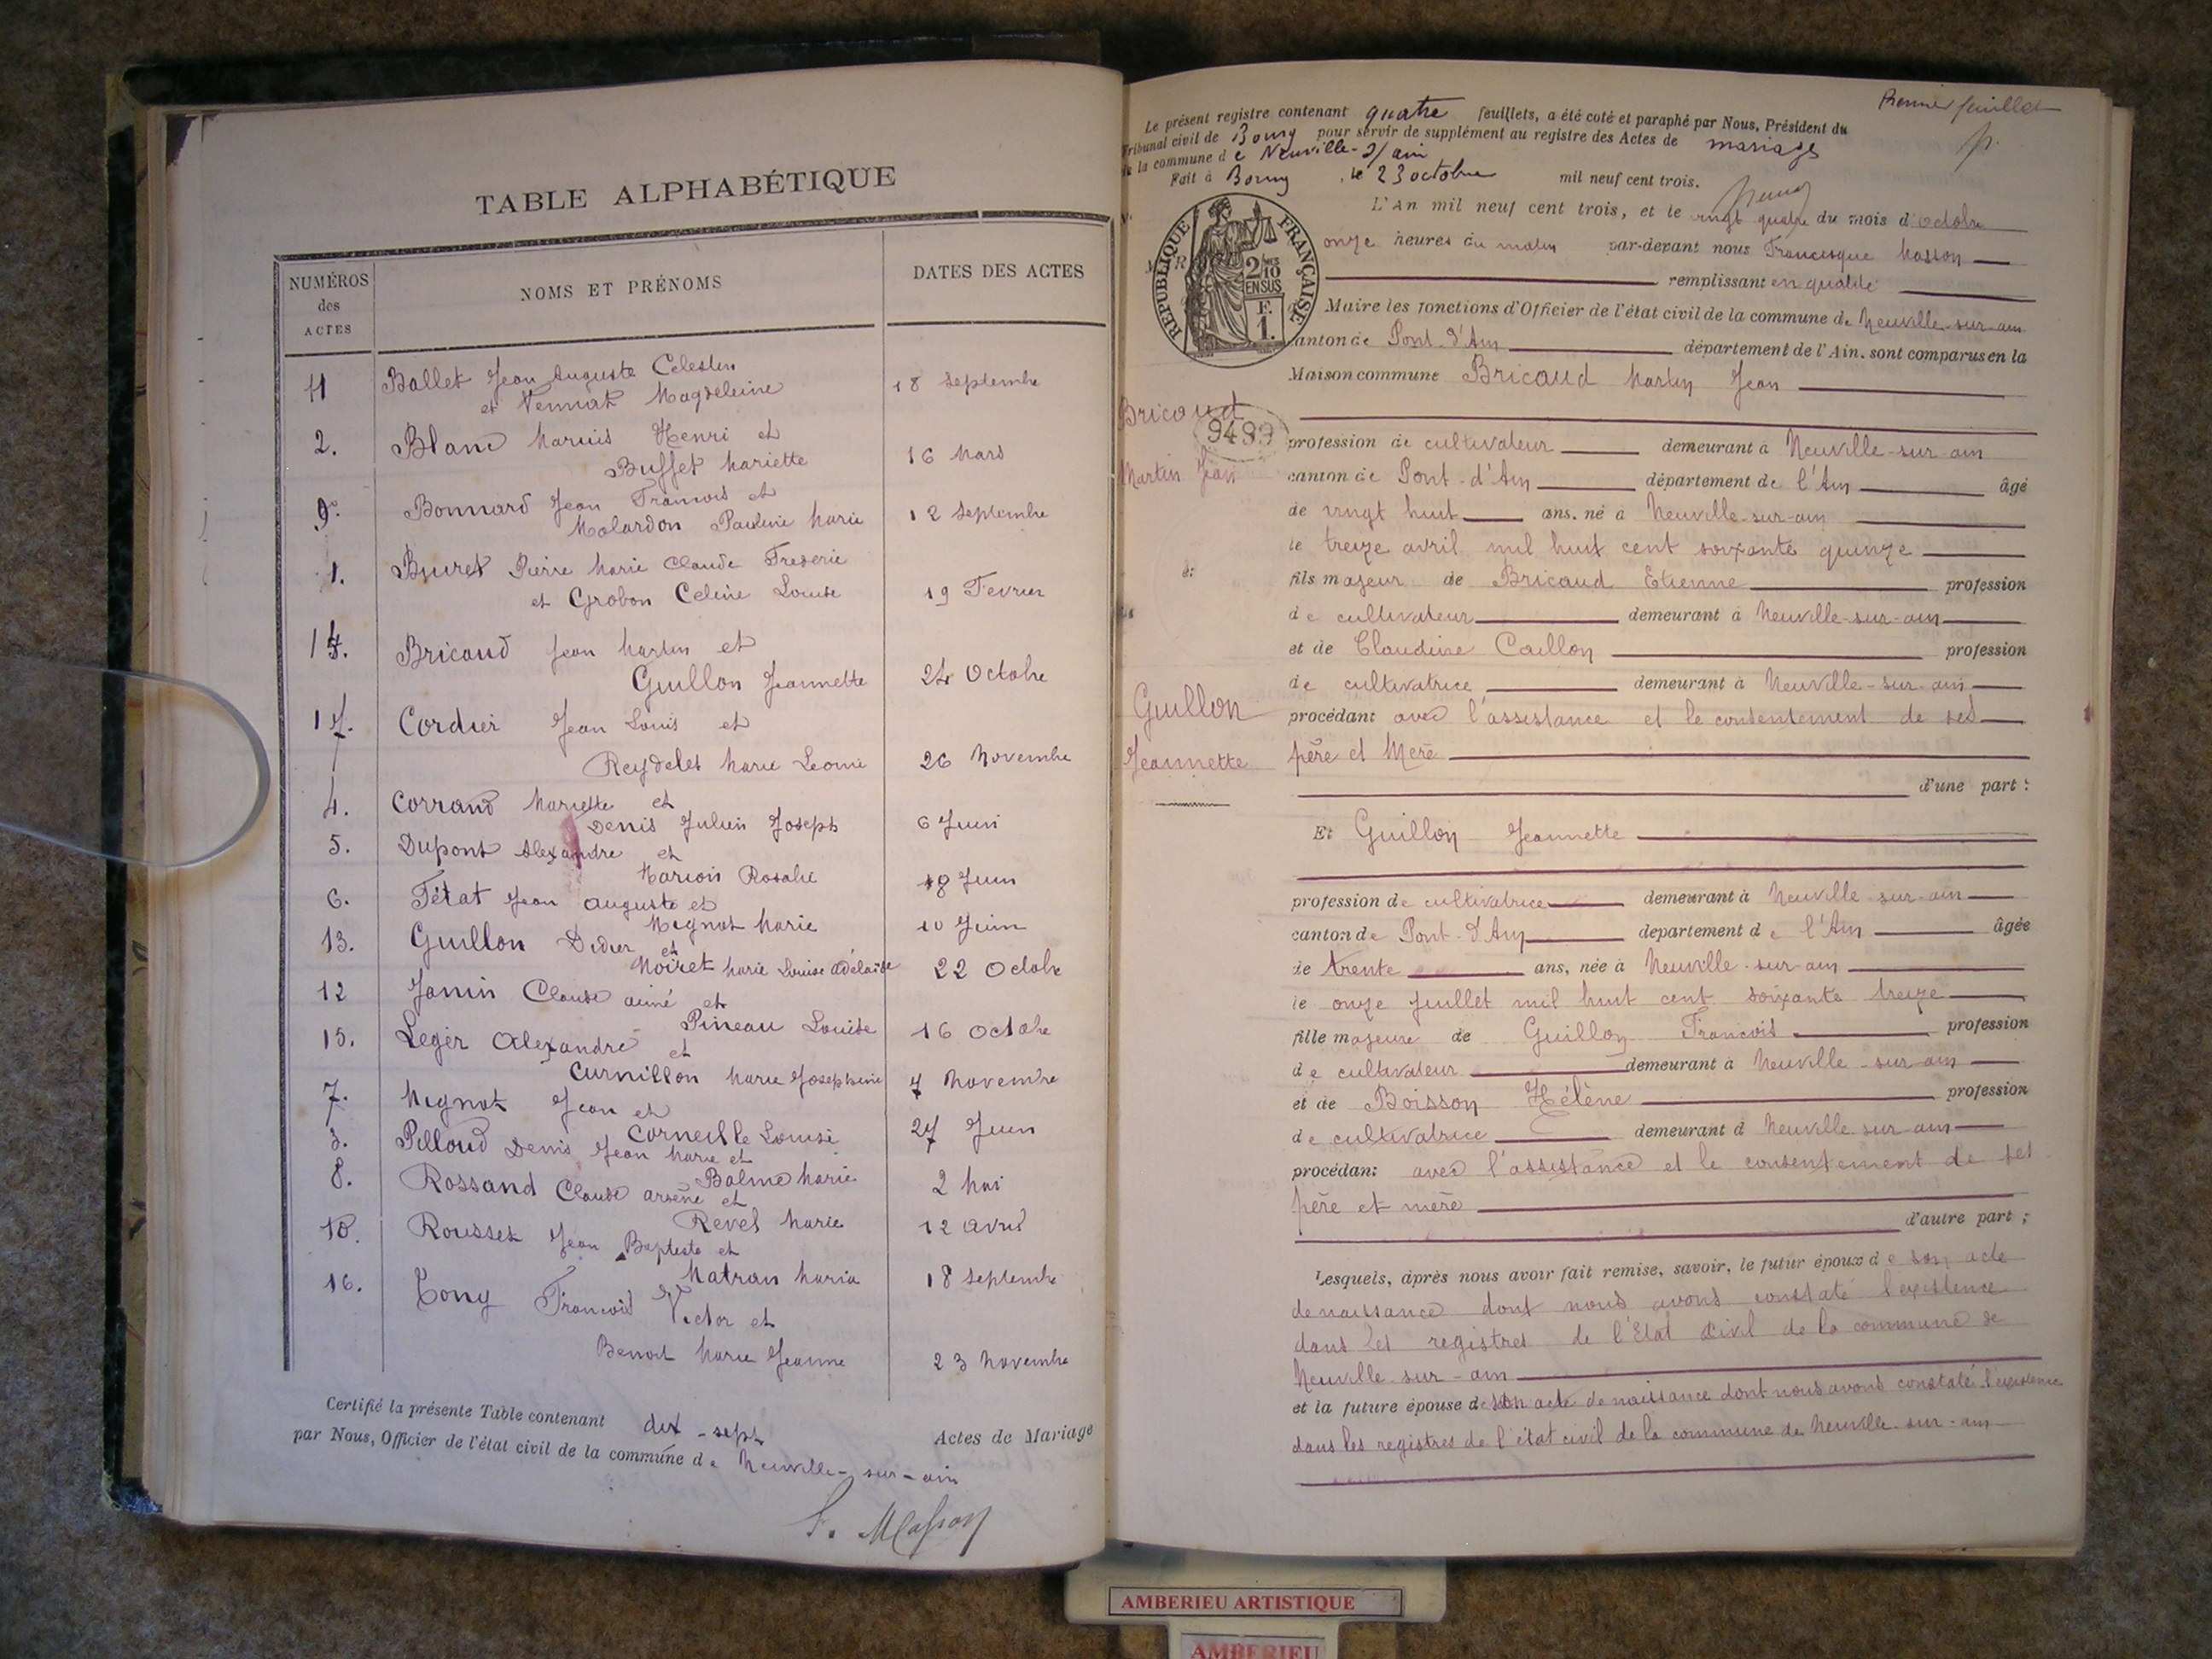 TABLE ALPHABÉTIQUE
NUMÉROS des ACTES
NOMS ET PRÉNOMS
DATES DES ACTES
11 Ballet Jean Auguste Celestin
et Vennat Magdeleine 18 Septembre
2. Blanc Marius Henri et
Buffet Mariette 16 Mars
9. Bonnard Jean Francois et
Molardon Pauline Marie 12 Septembre
1. Buret Pierre Marie Claude Frederic
et Grobon Celine Louise 19 Fevrier
14. Bricaud Jean Martin et
Guillon Jeannette 24 Octobre
17. Cordier Jean Louis et
Reydelet Marie Leonie 26 Novembre
4. Corrand Mariette et
Denis Julien Joseph 6 Juin
5. Dupont Alexandre et
Marion Rosalie 18 Juin
6. Tétat Jean Auguste et
Mignot Marie 20 Juin
13. Guillon Didier et
Noiret Marie Louise Adélaïde 22 Octobre
12 Janin Claude aimé et
Pineau Louise 16 Octobre
15. Leger Alexandre et
Curnillon Marie Josephine 7 Novembre
7. Mignot Jean et
Corneille Louise 27 Juin
3. Pilloud Denis Jean Marie et
Balme Marie 2 Mai
8. Rossand Claude arsène et
Revel Marie 12 avril
10. Rousset Jean Baptiste et
Matran Maria 18 Septembre
16. Tony Francois Victor et
Benoit Marie Jeanne 23 Novembre
Certifié la présente Table contenant dix-sept Actes de Mariage
par Nous, Officier de l'état civil de la commune de Neuville-sur-ain
F. Masson
Premier feuillet
Le présent registre contenant quatre feuillets, a été coté et paraphé par Nous, Président du
Tribunal civil de Bourg pour servir de supplément au registre des Actes de mariages
de la commune de Neuville-s/ain
Fait à Bourg, le 23 octobre mil neuf cent trois.
L'An mil neuf cent trois, et le vingt quatre du mois d'octobre
onze heures du matin par-devant nous Francisque Masson
remplissant en qualité
Maire les fonctions d'Officier de l'état civil de la commune de Neuville-sur-ain
canton de Pont-d'Ain département de l'Ain, sont comparus en la
Maison commune Bricaud Martin Jean
RÉPUBLIQUE FRANÇAISE
2/10 EN SUS
F. 1.
Bricaud
9499
Martin Jean
et
Guillon
Jeannette
profession de cultivateur demeurant à Neuville-sur-ain
canton de Pont-d'Ain département de l'Ain âgé
de vingt huit ans, né à Neuville-sur-ain
le treize avril mil huit cent soixante quinze
fils majeur de Bricaud Etienne profession
de cultivateur demeurant à Neuville-sur-ain
et de Claudine Caillon profession
de cultivatrice demeurant à Neuville-sur-ain
procédant avec l'assistance et le consentement de ses
père et Mere
d'une part :
Et Guillon Jeannette
profession de cultivatrice demeurant à Neuville-sur-ain
canton de Pont-d'Ain département de l'Ain âgée
de trente ans, née à Neuville-sur-ain
le onze juillet mil huit cent soixante treize
fille majeure de Guillon Francois profession
de cultivateur demeurant à Neuville-sur-ain
et de Boisson Hélène profession
de cultivatrice demeurant à Neuville sur-ain
procédant avec l'assistance et le consentement de ses
père et mère
d'autre part ;
Lesquels, après nous avoir fait remise, savoir, le futur époux de son acte
de naissance dont nous avons constaté l'existence
dans les registres de l'Etat Civil de la commune de
Neuville-sur-ain
et la future épouse de son acte de naissance dont nous avons constaté l'existence
dans les registres de l'état civil de la commune de Neuville-sur-ain
AMBERIEU ARTISTIQUE
AMBERIEU